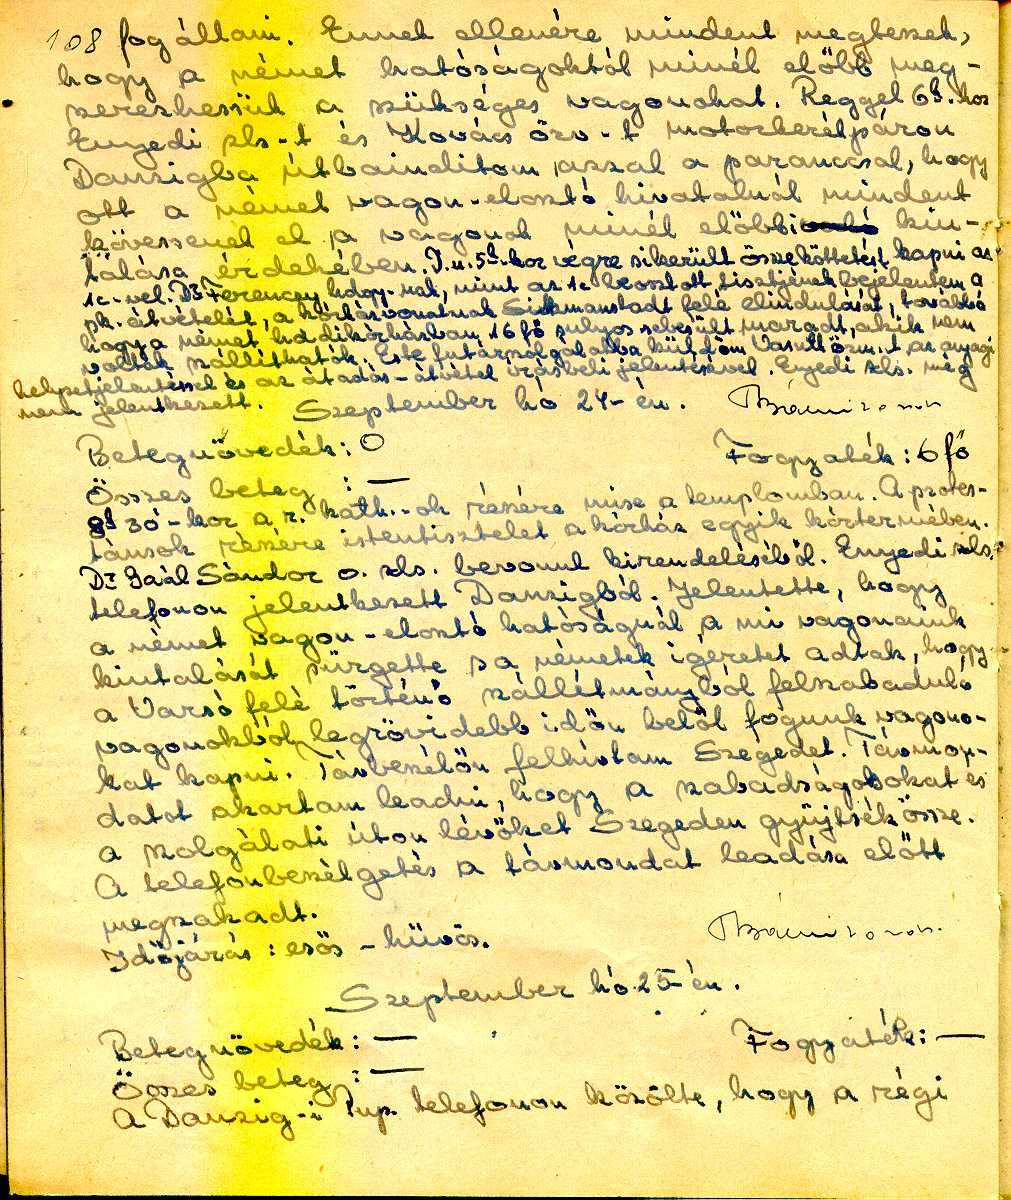 108 fog állani. Ennek ellenére mindent megteszek,
hogy a német hatóságoktól minél előbb meg-
szerezhessük a szükséges vagonokat. Reggel 6h.kor
Enyedi szls-t és Kovács őrv-t motorkerékpáron
Danzigba útbainditom azzal a paranccsal, hogy
ott a német vagon-elosztó hivatalnál mindent
kövessenek el a vagonok minél előbbi kiu-
talása érdekében. D.u. 5h-kor végre sikerült összeköttetést kapni az
1c-vel. Dr Ferenczy hdgy-nak, mint az 1c beosztott tisztjének bejelentem a
pk. átvételét, a kórházvonatnak Sickmanstadt felé elindulását, továbbá
hogy a német hadikórházban 16 fő sulyos sebesült maradt, akik nem
voltak szállíthatók. Este futárszolgálatba küldöm Vas őrm.t az anyagi
helyzetjelentéssel és az átadás-átvétel irásbeli jelentésével. Enyedi szls. még
nem jelentkezett.
Szeptember hó 24-én.
Betegnövedék: 0 Fogyaték: 6 fő
Összes beteg : —
8h 30-kor a r. kath.-ok részére mise a templomban. A protes-
tánsok részére istentisztelet a kórház egyik kórtermében.
Dr Gaál Sándor o. szls. bevonul kirendeléséből. Enyedi szls.
telefonon jelentkezett Danzigból. Jelentette, hogy
a német vagon-elosztó hatóságnál a mi vagonaink
kiutalását sürgette s a németek igéretet adtak, hogy
a Varsó felé történő szállítmányból felszabaduló
vagonokból legrövidebb időn belől fogunk vagono-
kat kapni. Távbeszélőn felhívtam Szegedet. Távmon-
datot akartam leadni, hogy a szabadságosokat és
a szolgálati úton lévőket Szegeden gyűjtsék össze.
A telefonbeszélgetés a távmondat leadása előtt
megszakadt.
Időjárás: esős - hűvös.
Szeptember hó 25-én.
Betegnövedék: — Fogyaték: —
Összes beteg : —
A Danzig-i telefonon közölte, hogy a régi